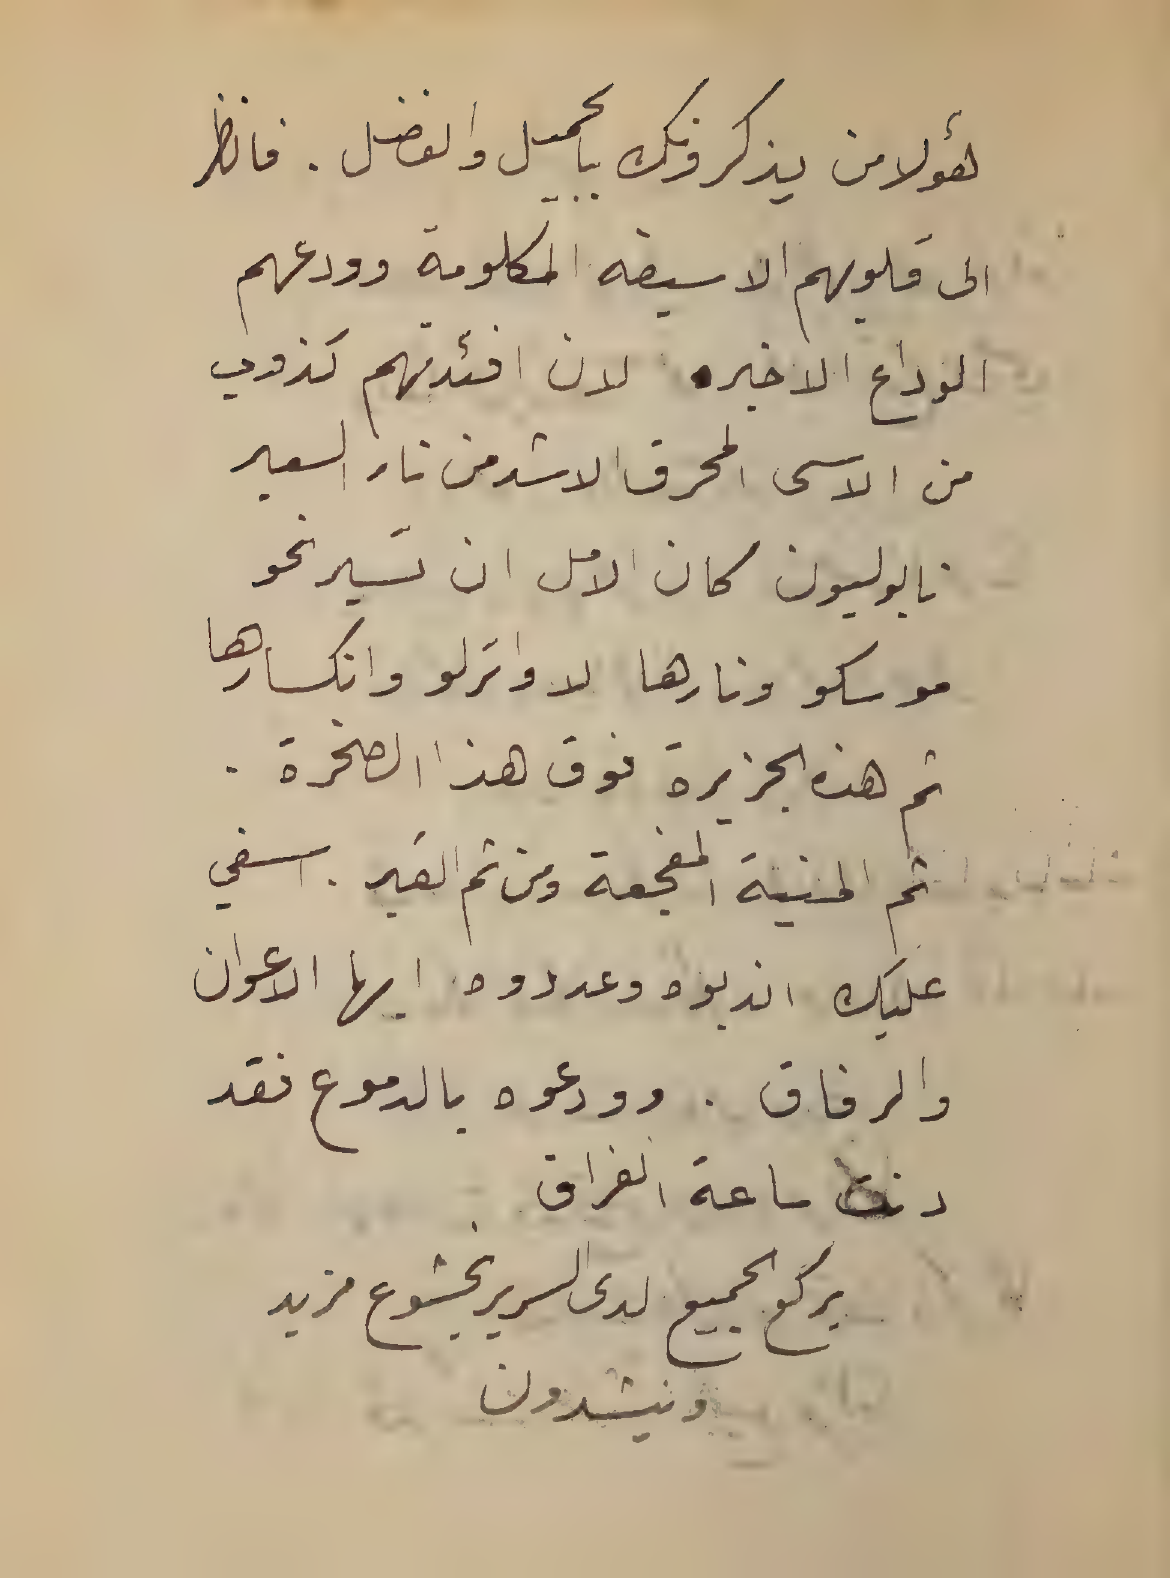 هؤلا من يذكرونك بالجميل والفضل . فانظر
الى قلوبهم الاسيفه المكلومة وودعهم
الوداع الاخيره لان افئدتهم تذوب
من الاسى المحرق الاشد من نار السعير
نابوليون كان الامل ان تسير نحو
موسكو ونارها لا واترلو وانكسارها
ثم هذه الجزيرة فوق هذا الصخرة .
ثم المنية المفجعة ومن ثم القبر . اسفي
عليك اندبوه وعددوه ايها الاعوان
والرفاق . وودعوه بالدموع فقد
دنت ساعة الفراق
يركع الجميع لدى السرير بخشوع مزيد
وينشدون